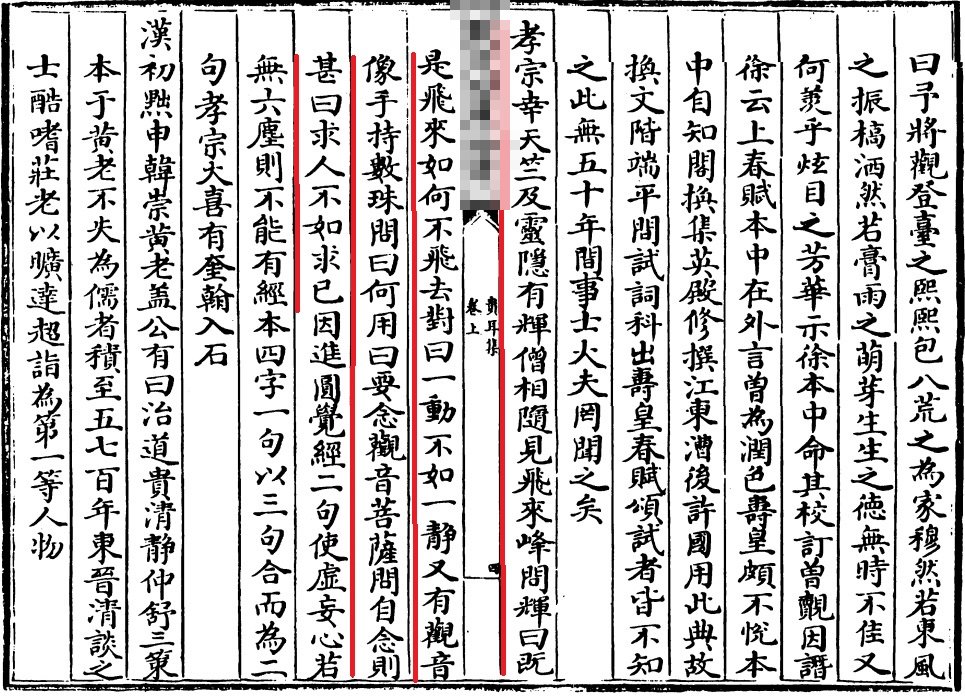 曰予將觀登臺之熙熙包八荒之為家穆然若東風
之振槁洒然若膏雨之萌芽生生之德無時不佳又
何羨乎炫目之芳華示徐本中命其校訂曽覿因譖
徐云上春賦本中在外言曽為潤色壽皇頗不悅本
中自知閤換集英殿修撰江東漕後許國用此典故
換文階端平間試詞科出壽皇春賦頌試者皆不知
之此無五十年間事士大夫罔聞之矣
孝宗幸天竺及靈隱有輝僧相隨見飛來峰問輝曰既
貴耳集
卷上
四
是飛來如何不飛去對曰一動不如一靜又有觀音
像手持數珠問曰何用曰要念觀音菩薩問自念則
甚曰求人不如求已因進圓覺經二句使虛妄心若
無六塵則不能有經本四字一句以三句合而為二
句孝宗大喜有奎翰入石
漢初黜申韓崇黃老蓋公有曰治道貴清静仲舒三策
本于黃老不失為儒者積至五七百年東晉清談之
士酷嗜莊老以曠達超詣為第一等人物